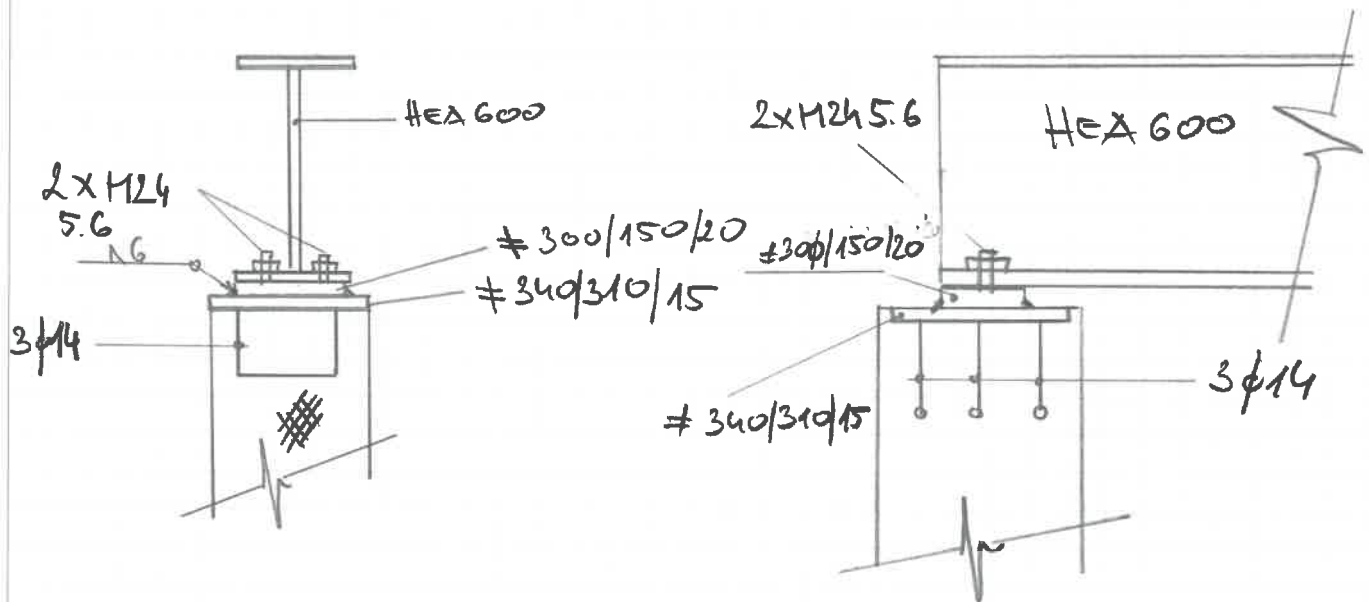 HEA 600
2xM24
5.6
6
≠ 300/150/20
≠ 340/310/15
3ϕ14
2xM24 5.6
HEA 600
≠300/150/20
≠ 340/310/15
3ϕ14